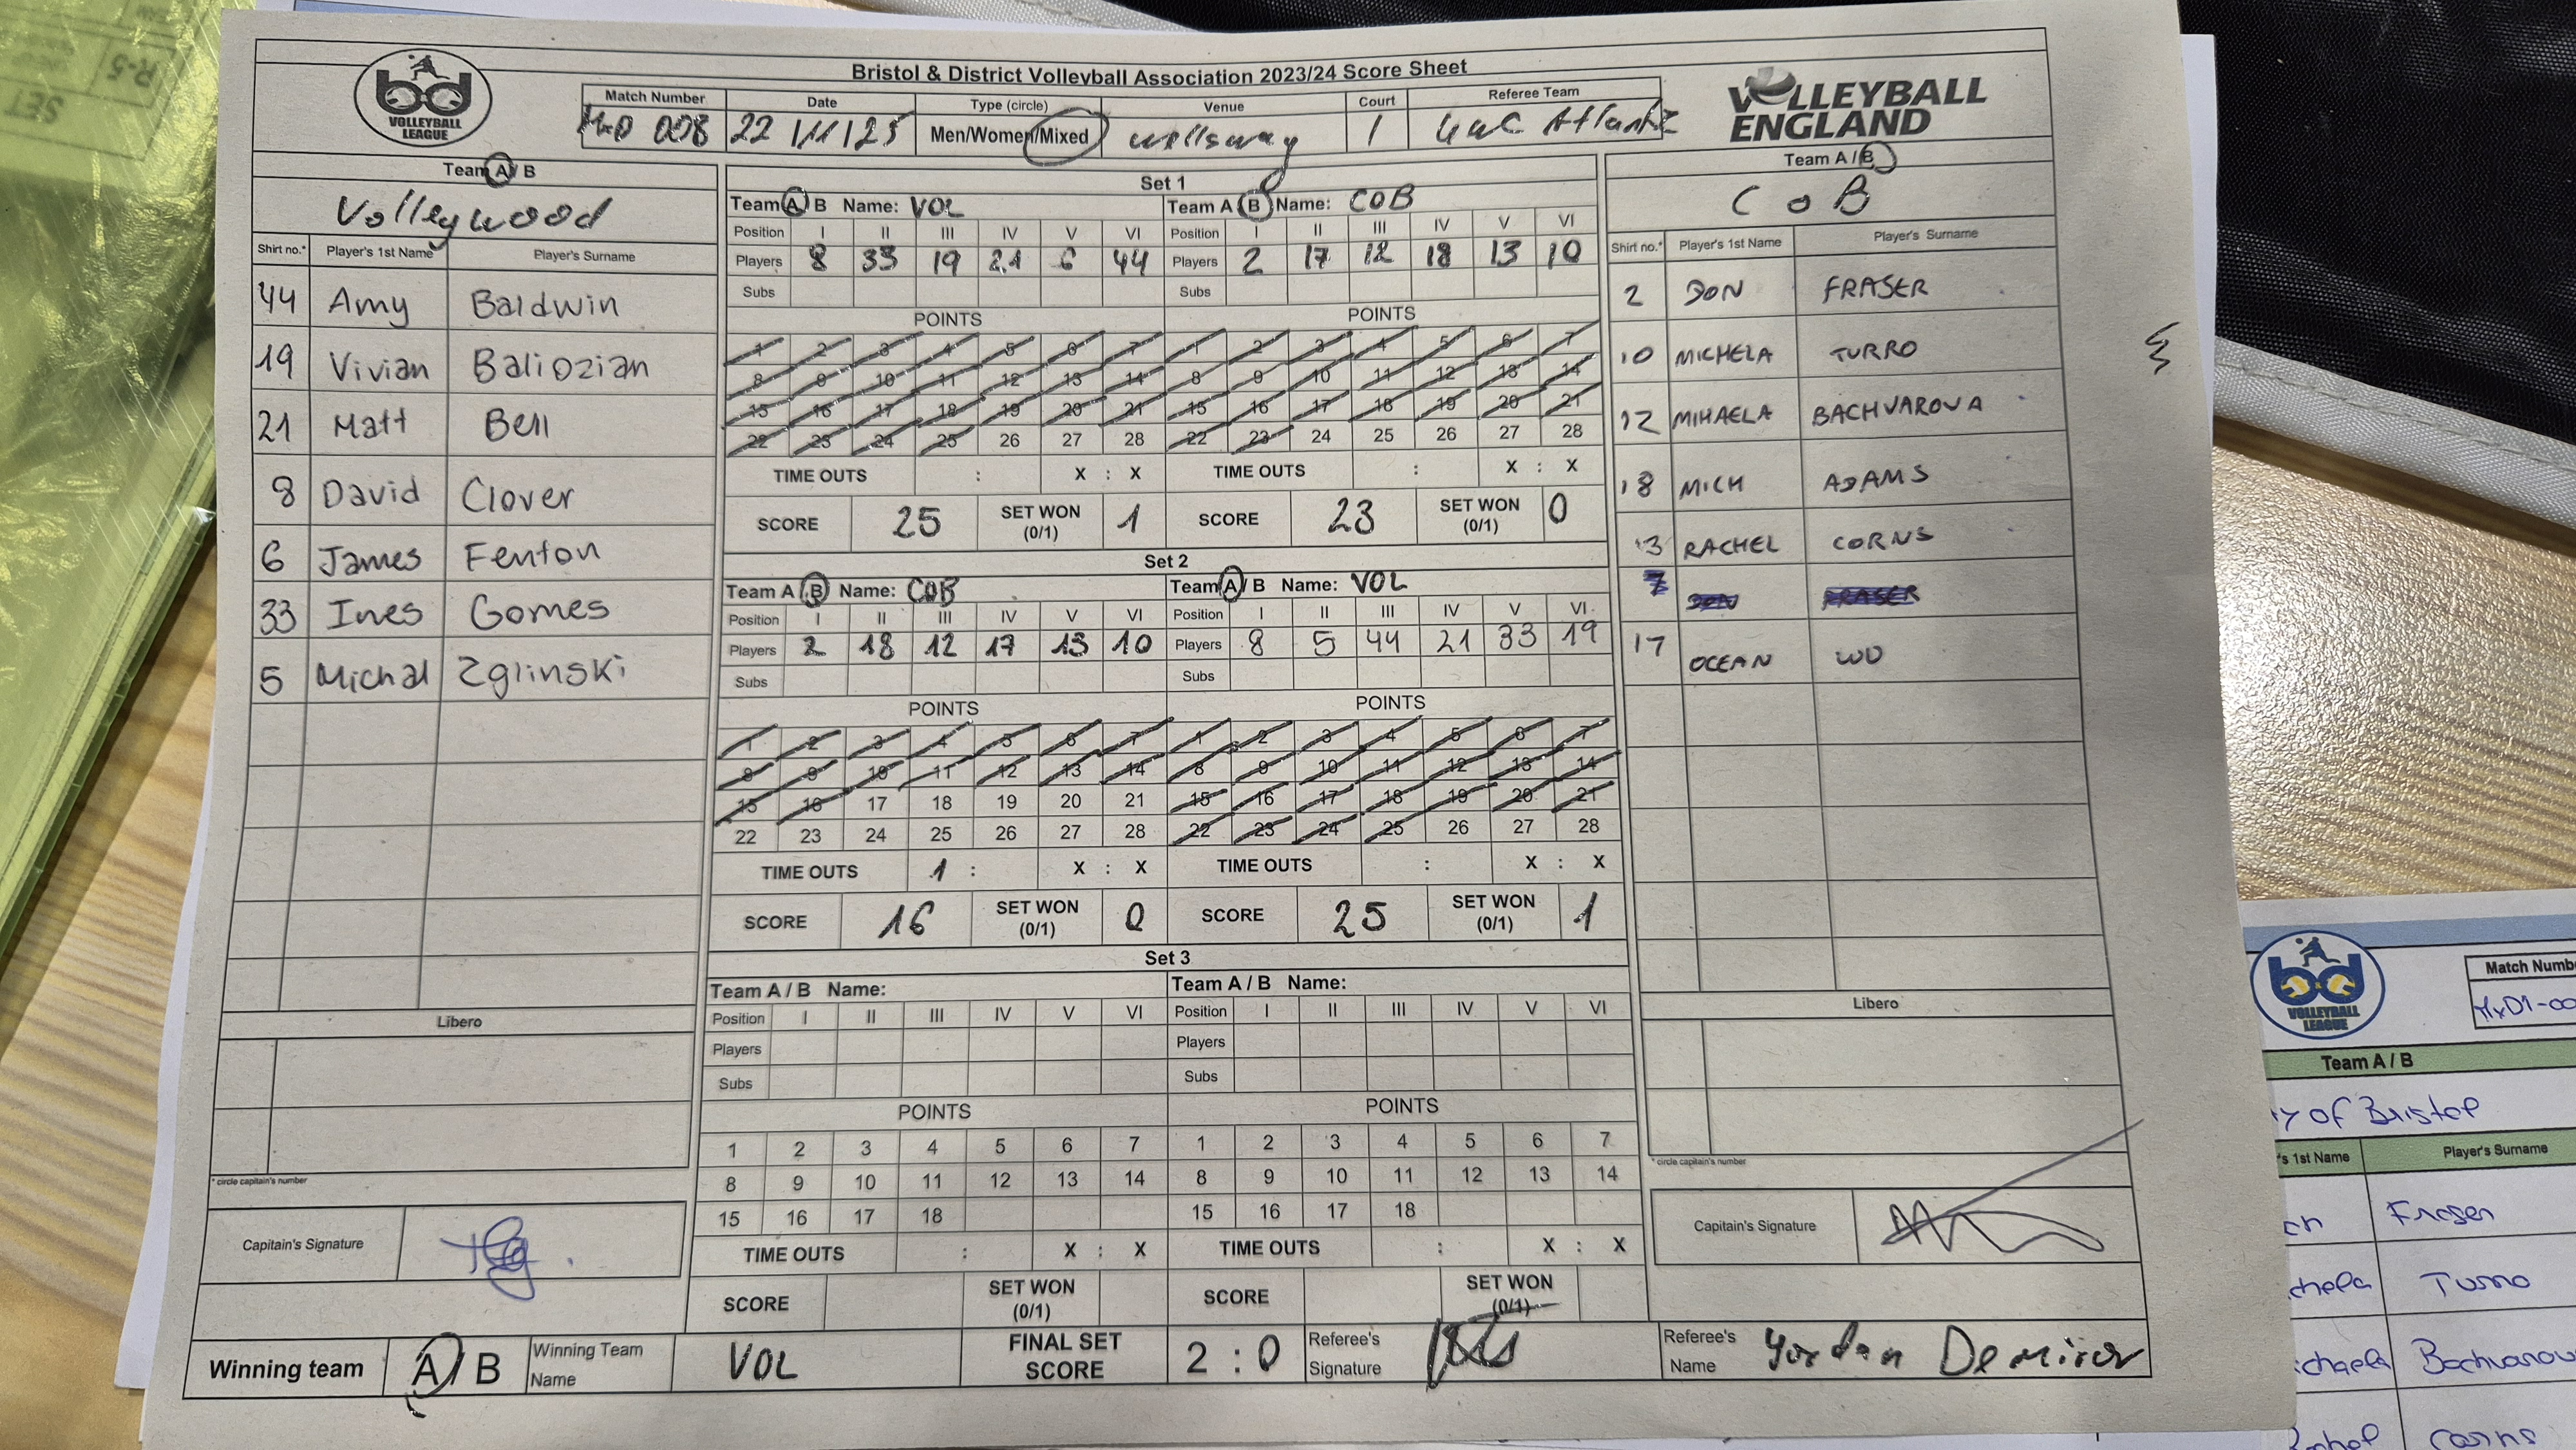 Bristol & District Volleyball Association 2023/24 Score Sheet
bd VOLLEYBALL LEAGUE
VOLLEYBALL ENGLAND
Match Number Date Type (circle) Venue Court Referee Team
008 22/11/25 Men/Women/Mixed Wellsway 1 Atlantic
Team A / B
Volleywood
Shirt no.* Player's 1st Name Player's Surname
44 Amy Baldwin
19 Vivian Baliozian
21 Matt Bell
8 David Clover
6 James Fenton
33 Ines Gomes
5 Michal Zglinski
Libero
* circle capitain's number
Capitain's Signature
Set 1
Team A B Name: VOL
Position I II III IV V VI
Players 8 33 19 21 6 44
Subs
POINTS
1 2 3 4 5 6 7
8 9 10 11 12 13 14
15 16 17 18 19 20 21
22 23 24 25 26 27 28
TIME OUTS : X : X
SCORE 25 SET WON (0/1) 1
Team A B Name: COB
Position I II III IV V VI
Players 2 17 12 18 13 10
Subs
POINTS
1 2 3 4 5 6 7
8 9 10 11 12 13 14
15 16 17 18 19 20 21
22 23 24 25 26 27 28
TIME OUTS : X : X
SCORE 23 SET WON (0/1) 0
Set 2
Team A / B Name: COB
Position I II III IV V VI
Players 2 18 12 17 13 10
Subs
POINTS
1 2 3 4 5 6 7
8 9 10 11 12 13 14
15 16 17 18 19 20 21
22 23 24 25 26 27 28
TIME OUTS 1 : X : X
SCORE 16 SET WON (0/1) 0
Team A / B Name: VOL
Position I II III IV V VI
Players 8 5 44 21 33 19
Subs
POINTS
1 2 3 4 5 6 7
8 9 10 11 12 13 14
15 16 17 18 19 20 21
22 23 24 25 26 27 28
TIME OUTS : X : X
SCORE 25 SET WON (0/1) 1
Set 3
Team A / B Name:
Position I II III IV V VI
Players
Subs
POINTS
1 2 3 4 5 6 7
8 9 10 11 12 13 14
15 16 17 18
TIME OUTS : X : X
SCORE SET WON (0/1)
Team A / B Name:
Position I II III IV V VI
Players
Subs
POINTS
1 2 3 4 5 6 7
8 9 10 11 12 13 14
15 16 17 18
TIME OUTS : X : X
SCORE SET WON (0/1)
Team A / B
COB
Shirt no.* Player's 1st Name Player's Surname
2 DON FRASER
10 MICHELA TURRO
12 MIHAELA BACHVAROVA
18 MICH ADAMS
13 RACHEL CORNS
7 DON FRASER
17 OCEAN WU
Libero
* circle capitain's number
Capitain's Signature
Winning team A/B Winning Team Name VOL FINAL SET SCORE 2 : 0 Referee's Signature Referee's Name Yordan Demirev
R-5
SET
bd VOLLEYBALL LEAGUE
Match Numb
MxD1-00
Team A / B
y of Bristol
's 1st Name Player's Surname
ch Fraser
chela Turro
chaela Bachvarov
chel Corns